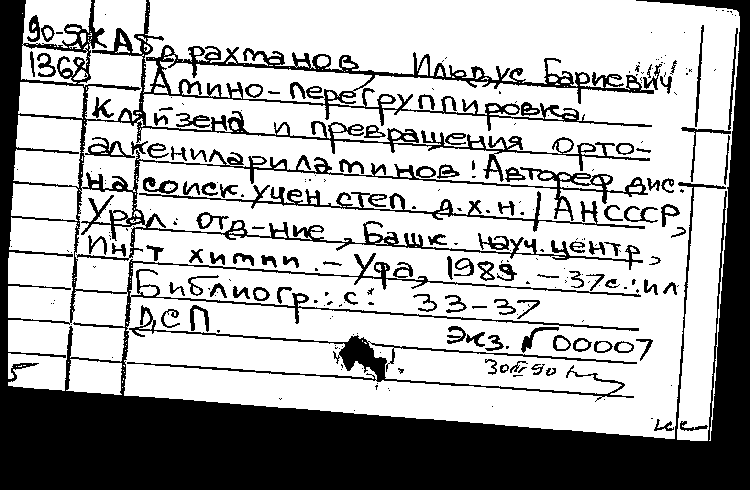 90-50К Абдрахманов, Ильдус Бариевич
1368 Амино-перегруппировка
Кляйзена и превращения орто-
алкенилариламинов: Автореф дис.
на соиск. учен. степ. д.х.н. / АНСССР,
Урал. отд-ние, Башк. науч. центр,
Ин-т химии. - Уфа, 1989. - 37с.: ил
Библиогр.: с: 33-37
ДСП. Экз. №00007
30 III 90
5